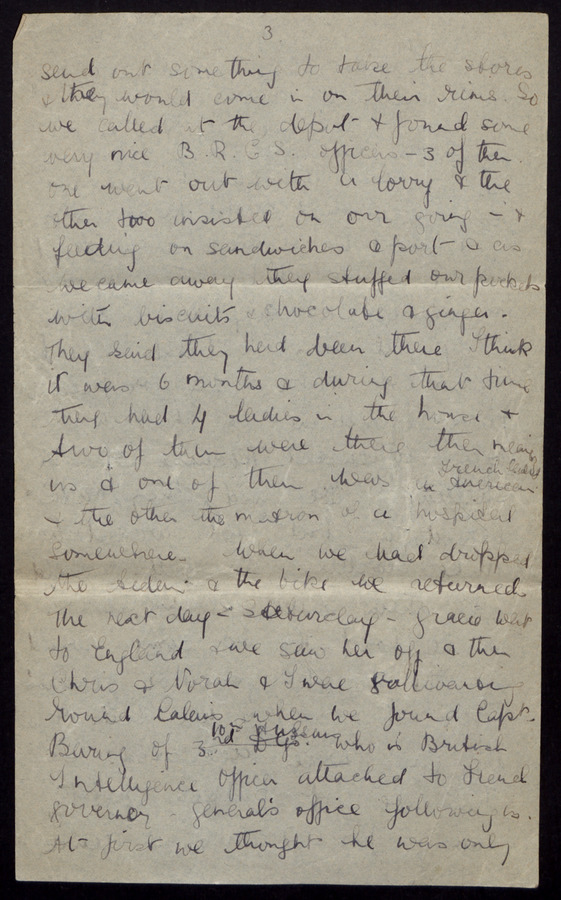 3.
send out something to take the stores
& they would come in on their rims. So
we called at the depot & found some
very nice B.R.C.S. officers - 3 of them.
one went out with a lorry & the
other two insisted on our going - &
feeding on sandwiches & port & as
we came away they stuffed our pockets
with biscuits, & chocolate & ginger.
They said they had been there I think
it was 6 months & during that time
they had 4 ladies in the house &
two of them were there then
us & one of them was an American
& the other the matron of a hospital
somewhere. When we had dropped
the & the bike we returned
the next day - Saturday - Gracie went
to England & we saw her off & then
Chris & Norah & I were gallivanting
round Calais when we found Capt.
Baring of who is British
Intelligence officer attached to French
governor - general's office following us.
At first we thought he was only